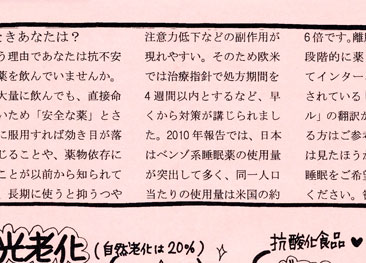 ときあなたは？
う理由であなたは抗不安
薬を飲んでいませんか。
大量に飲んでも、直接命
いため「安全な薬」とさ
に服用すれば効き目が落
じることや、薬物依存に
ことが以前から知られて
長期に使うと抑うつや
注意力低下などの副作用が
現れやすい。そのため欧米
では治療指針で処方期間を
4週間以内とするなど、早
くから対策が講じられまし
た。2010年報告では、日本
はベンゾ系睡眠薬の使用量
が突出して多く、同一人口
当たりの使用量は米国の約
6倍です。離
段階的に薬
てインター
されている「
ル」の翻訳が
る方はご参考
は見たほうか
睡眠をご希望
ください。
光老化（自然老化は20%）
抗酸化食品♥